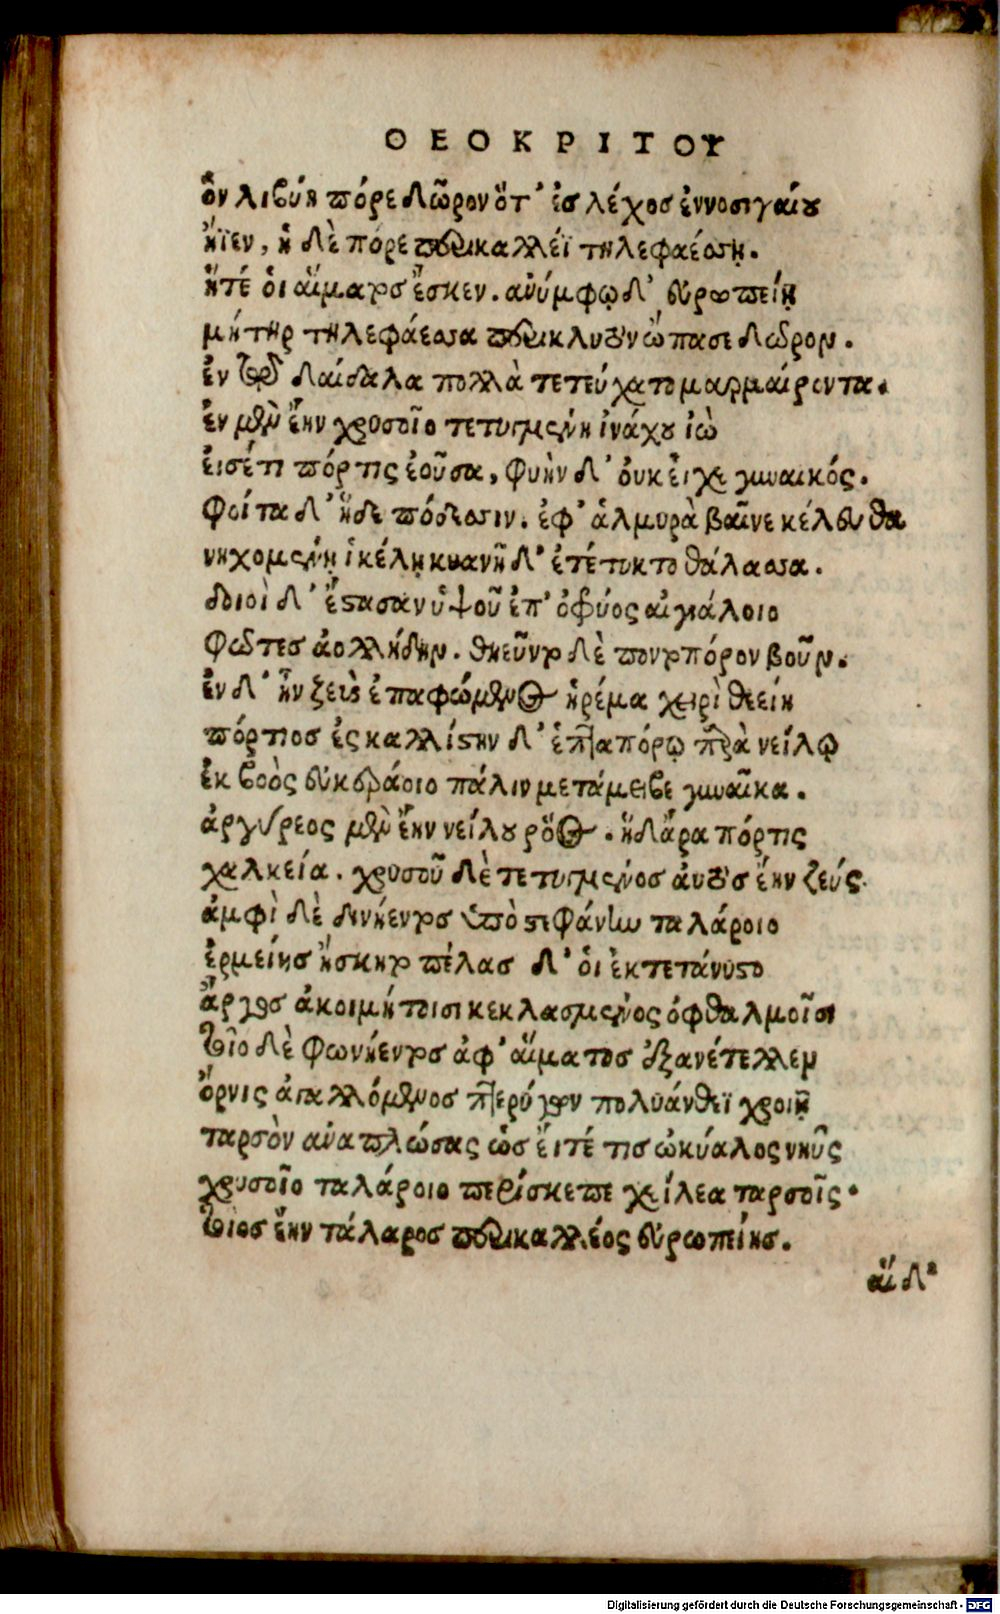 ΘΕΟΚΡΙΤΟΥ
ὃν λιβύη πόρε δῶρον ὅτ' ἐς λέχος ἐννοσιγαίου
ἤϊεν, ἡ δὲ πόρε περικαλλέϊ τηλεφαέσσῃ.
ἥτέ οἱ αἵματος ἔσκεν. ἀνύμφῳ δ' εὐρωπείῃ
μήτηρ τηλεφάεσσα περικλυτὸν ὤπασε δῶρον.
ἐν τῷ δαίδαλα πολλὰ τετεύχατο μαρμαίροντα.
ἐν μὲν ἔην χρυσοῖο τετυγμένη ἰνάχου ἰὼ
εἰσέτι πόρτις ἐοῦσα, φυὴν δ' οὐκ εἶχε γυναικός.
Φοίτα δ' ἥδε πόδεσσιν. ἐφ' ἁλμυρὰ βαῖνε κέλευθα
νηχομένῃ ἰκέλη κυανῆ δ' ἐτέτυκτο θάλασσα.
δοιοὶ δ' ἔστασαν ὑψοῦ ἐπ' ὀφρύος αἰγιάλοιο
Φῶτες ἀολλήδην. θηεῦντο δὲ ποντοπόρον βοῦν.
ἐν δ' ἦν ζεὺς ἐπαφώμενος ἠρέμα χειρὶ θεείη
πόρτιος ἐς καλλίστην δ' ἑπταπόρῳ παρὰ νείλῳ
ἐκ βοὸς εὐκεράοιο πάλιν μετάμειβε γυναῖκα.
ἀργύρεος μὲν ἔην νείλου ῥόος. ἡ δ' ἄρα πόρτις
χαλκεία. χρυσοῦ δὲ τετυγμένος αὐτὸς ἔην ζεύς.
ἀμφὶ δὲ δινήεντος ὑπὸ στεφάνην ταλάροιο
ἑρμείης ἤσκητο πέλας δ' οἱ ἐκτετάνυστο
ἄργος ἀκοιμήτοισι κεκλασμένος ὀφθαλμοῖσι
τοῖο δὲ φωνήεντος ἀφ' αἵματος ἐξανέτελλεν
ὄρνις ἀγαλλόμενος πτερύγων πολυάνθεϊ χροιῇ
ταρσὸν ἀναπλώσας ὡς εἴτέ τις ὠκύαλος νηῦς
χρυσοῖο ταλάροιο περίσκεπε χείλεα ταρσοῖς.
τοῖος ἔην τάλαρος περικαλλέος εὐρωπείης.
αἱ δ'
Digitalisierung gefördert durch die Deutsche Forschungsgemeinschaft - DFG